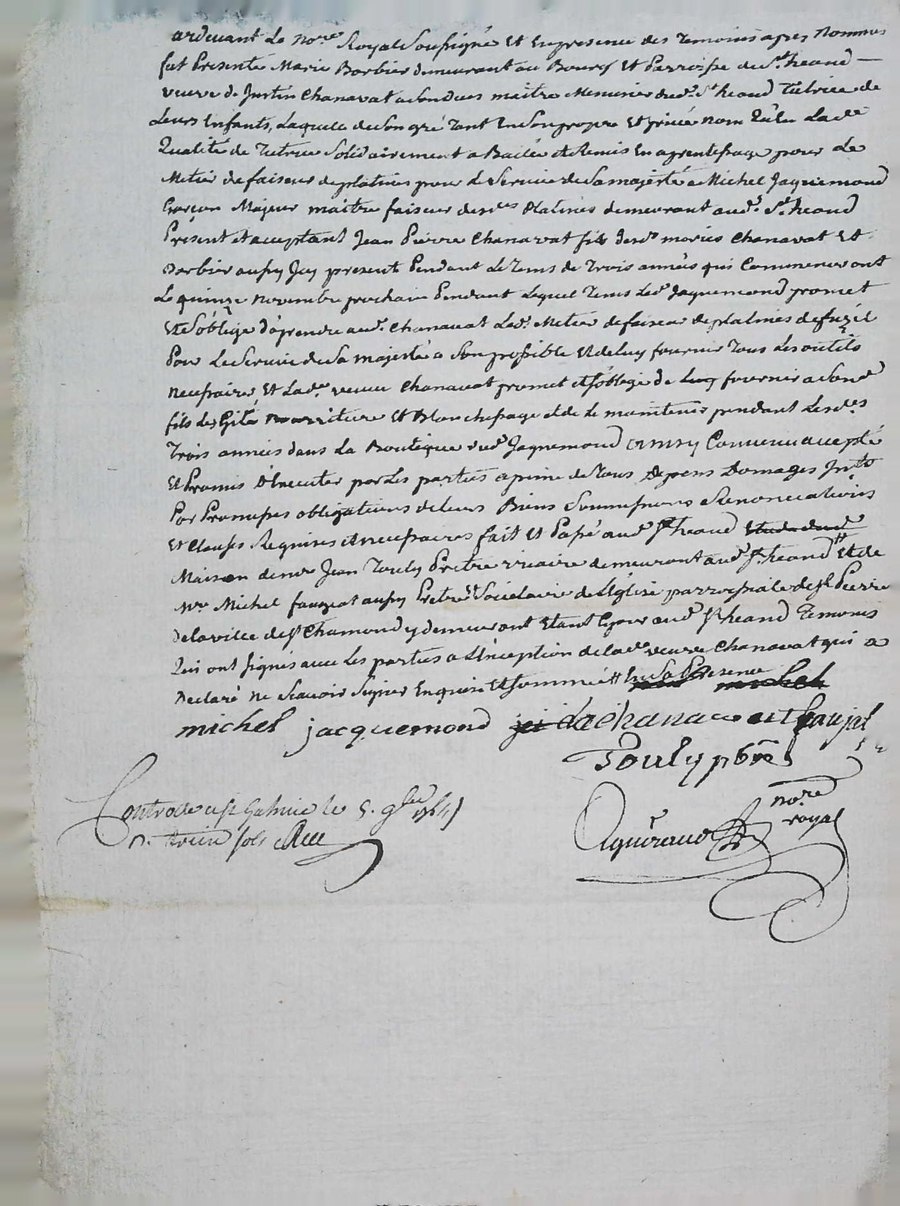 ardevant Le no.re Royal Soussigné Et En presence des Temoins apres Nommes
fut Presente Marie Barbier demeurant au Bourg Et Parroisse de S.t heand —
veuve de Justin Chanavat a son vivant maitre Menuzier dud. S.t heand Tutrice de
Leurs Enfants, Laquelle de Son gré Tant En Son propre Et privé nom qu'En Lad.te
Qualité de Tutrice Solidairement a Baillé et Remis En aprentissage pour Le
Metier de faiseur de platines pour Le Service de Sa majesté a Michel Jaquemond
Garçon Majeur maitre faiseur desd.es Platines demeurant aud. S.t heand
Présent et acceptant Jean Pierre Chanavat fils desd. mariés Chanavat Et
Barbier aussy Icy present Pendant Le Tems de Trois années qui Commenceront
Le quinze novembre prochain Pendant Lequel Tems Led. Jaquemond promet
Et S'oblige d'aprendre aud. Chanavat Led. Metier de faiseur de platines de fuzil
Pour Le Service de Sa majesté a Son possible Et de Luy fournir Tous Les outils
necessaires, Et Lad. veuve Chanavat promet et s'oblige de Luy fournir a Sond.
fils Les Gite nourriture Et Blanchissage et de Le maintenir pendant Lesd.es
Trois années dans La Boutique dud. Jaquemond ainsy Convenu accepté
Et Promis D'Executer par Les parties a peine de Tous Depens Domages Int.ts
Par Promesses obligations de Leurs Biens Soumissions Renonciations
Et Clauses Requises et necessaires fait Et Passé aud. S.t heand
Maison de m.re Jean Pouly Prêtre vicaire demeurant aud. S.t heand Et de
M.re Michel faujat aussy Prêtre Societaire de L'Eglise parroissiale de S.t Pierre
De la ville de S.t Chamond y demeurant Etant Ce jour aud. S.t heand Temoins
Qui ont signés avec Les parties a L'exception de lad. veuve Chanavat qui a
Declaré ne Scavoir Signer Enquise Et sommée En Sa Presence michel
michel jacquemond chanavat faujat
Pouly pbre
Controllé à S.t Galmier le 5. 9bre
R. treize sols
no.re
royal